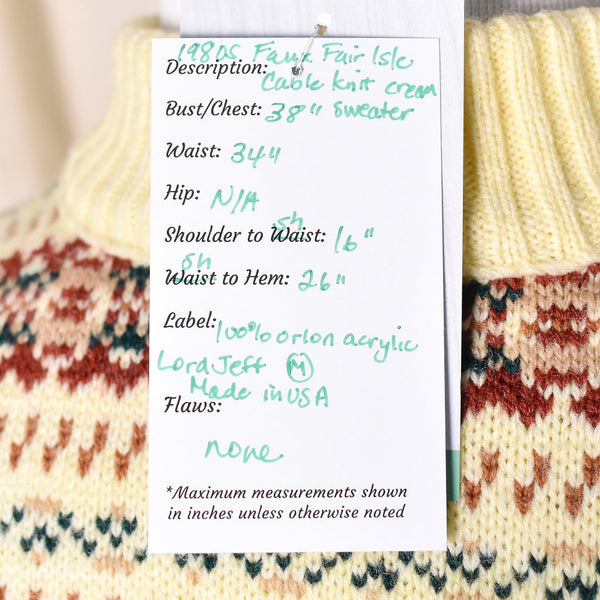 1980s Faux Fair Isle
Description: Cable knit cream
Bust/Chest: 38" sweater
Waist: 34"
Hip: N/A
sh
Shoulder to Waist: 16"
sh
Waist to Hem: 26"
Label: 100% orlon acrylic
Lord Jeff M
Made in USA
Flaws:
none
*Maximum measurements shown
in inches unless otherwise noted